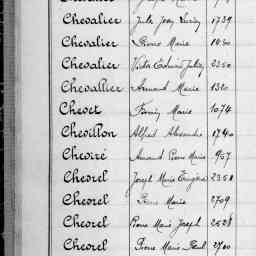 Chevalier Jules Jean Lucien 1739
Chevalier Pierre Marie
Chevalier Victor Edouard 2350
Chevallier Armand Marie 1320
Chevet Marie 1074
Chevillon Alfred Alexandre 1740
Cheviré Armand Pierre Marie 957
Cheorel Joseph Marie Eugène 2358
Cheorel Pierre Marie 2709
Cheorel Pierre Marie Joseph 2528
Cheorel Pierre Marie Paul 2700